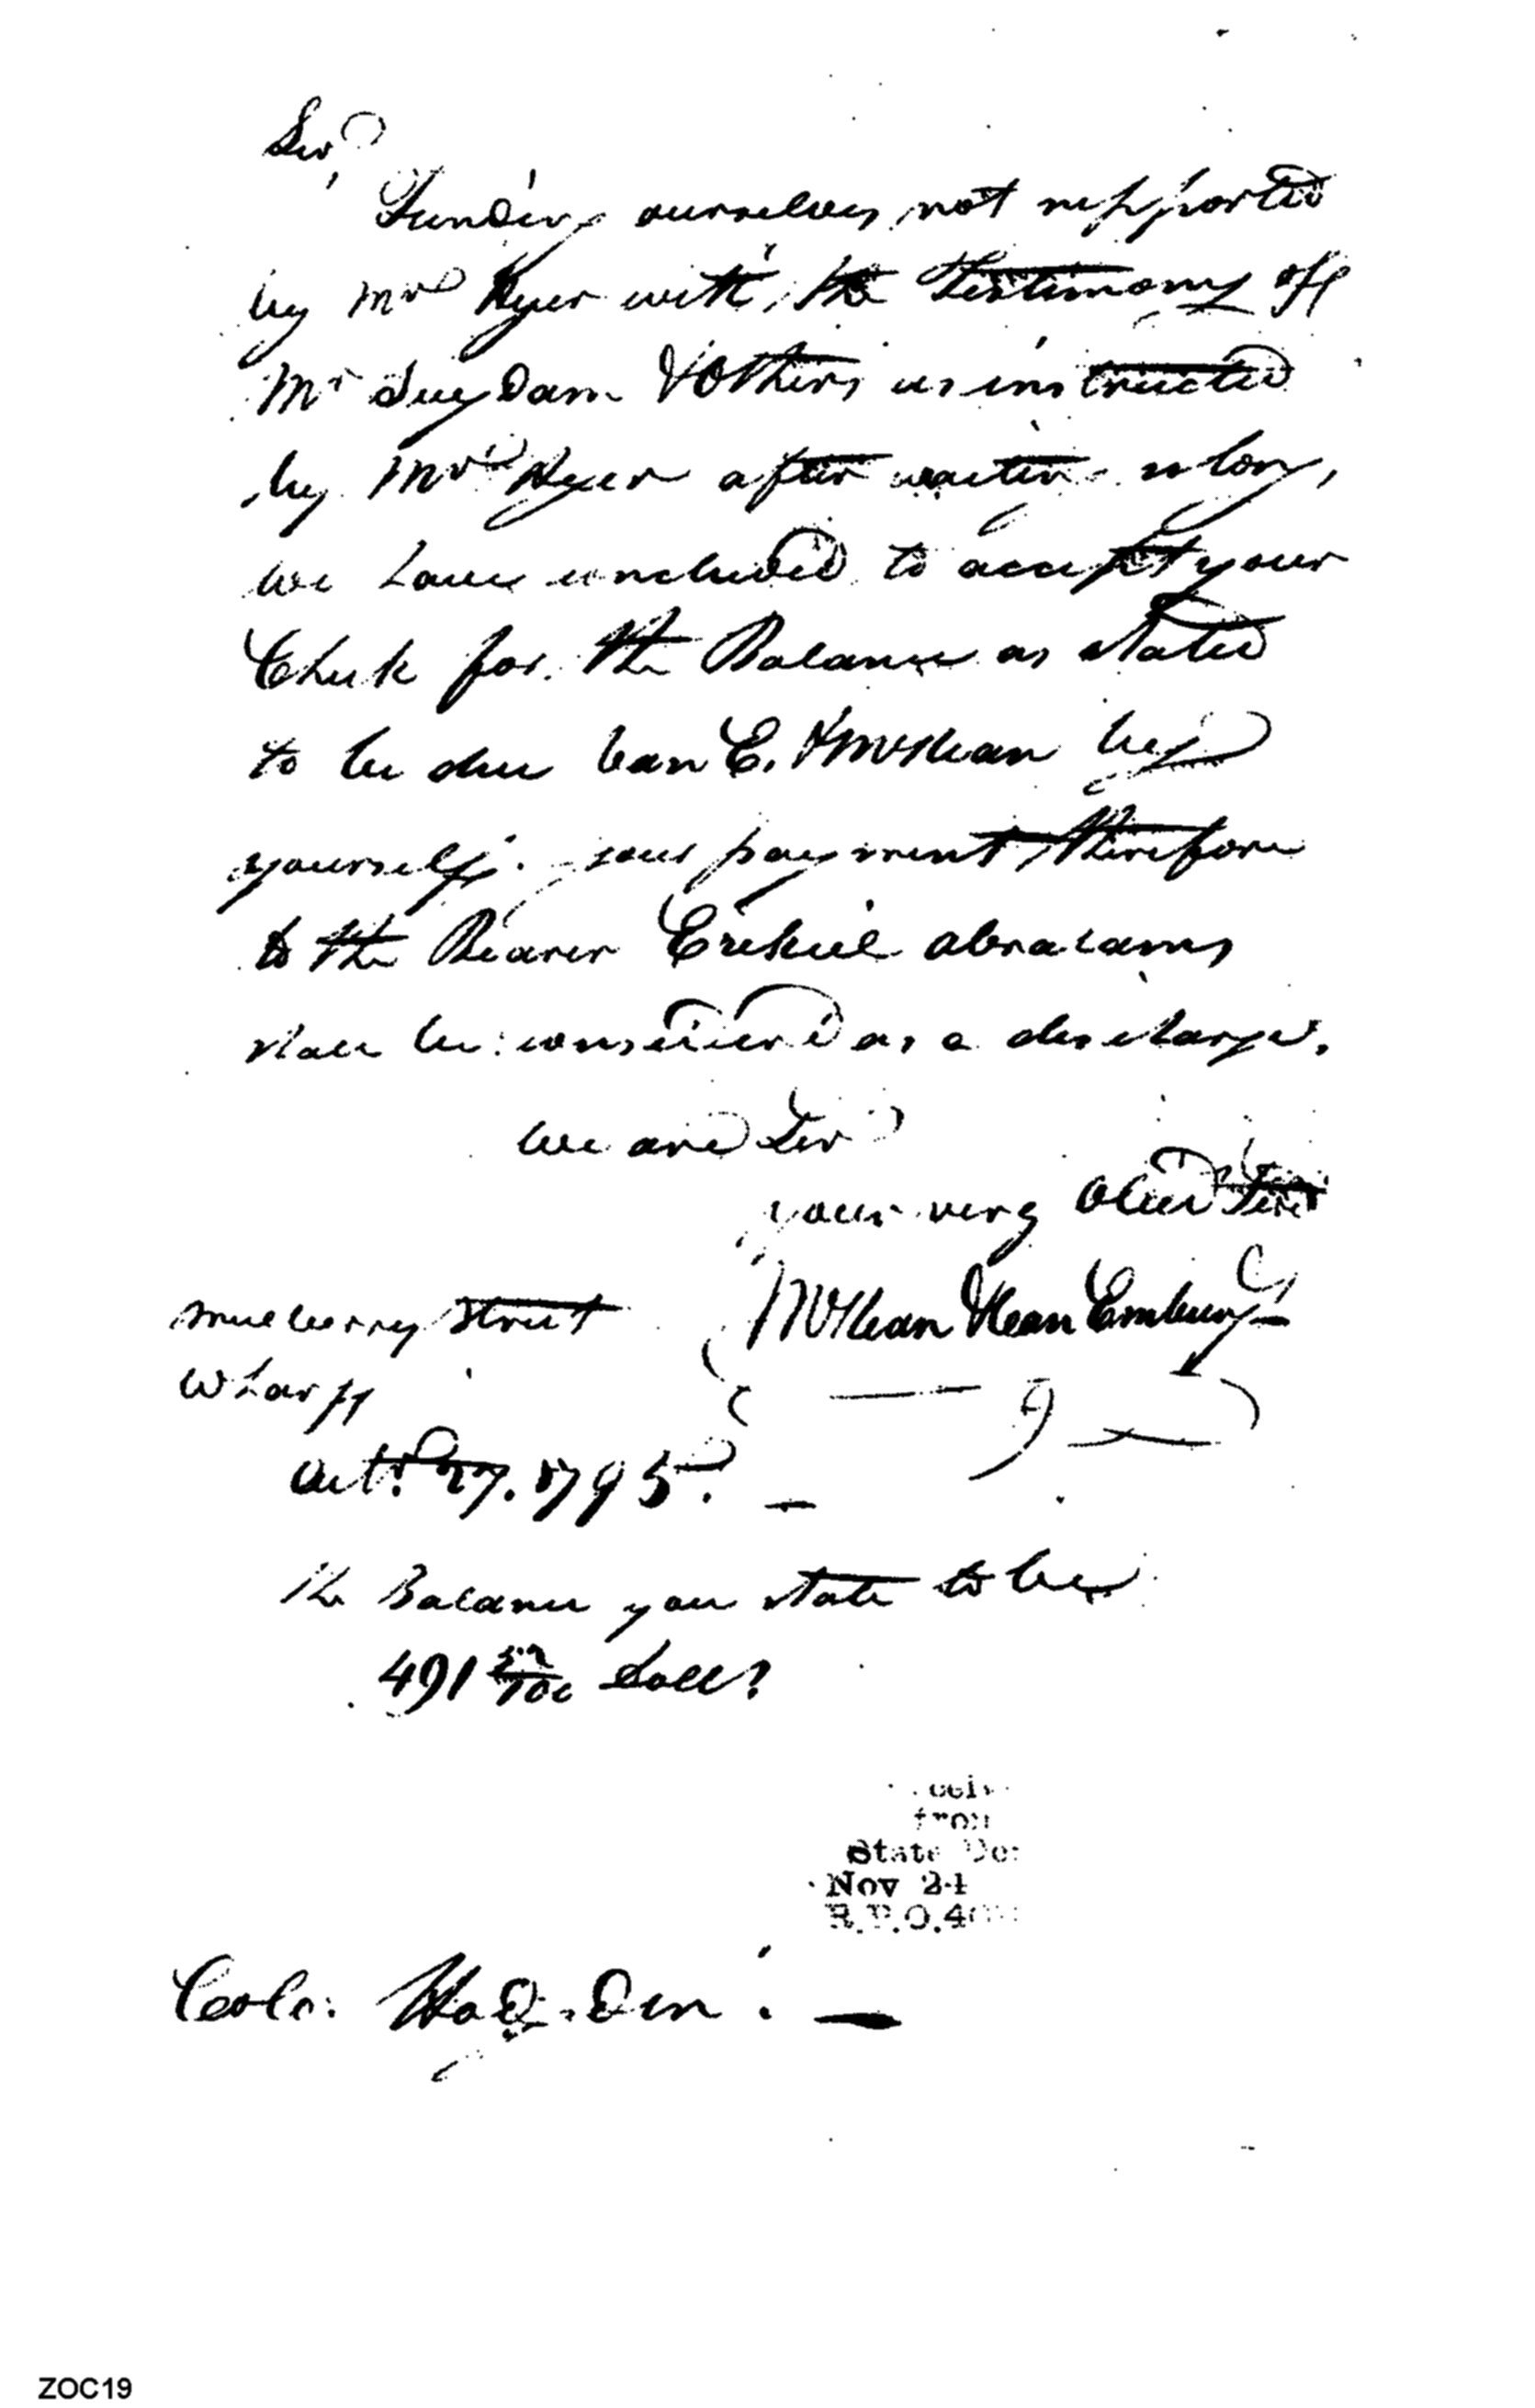 Sir,
Finding ourselves not supported
by Mr Hyer with the testimony off
Mr Suydam & others as instructed
by Mr Hyer after waiting so long,
we have concluded to accept your
Check for the Balance as stated
to be due Van E. & McKean by
yourself. your payment therefore
to the Bearer Ezekiel abrahams
shall be considered as a discharge.
we are Sir
your very Obed Servt
Mulberry Street
Wharff
Octr. 27. 1795. —
the Balance you state to be
491 52/100 Dolls.
from
State De
Nov 24
R.P.O.4
Colo. Hodgdon. —
ZOC19